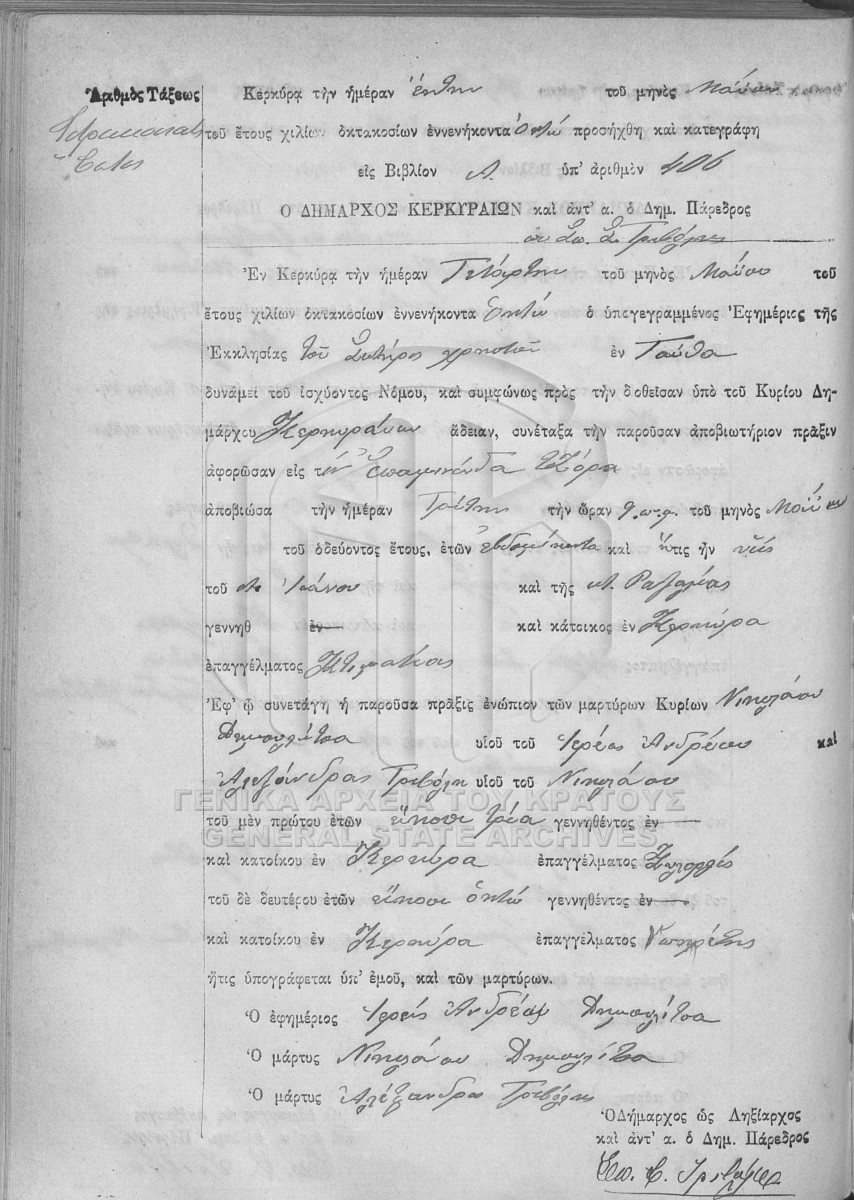 Ἀριθμὸς Τάξεως
Κερκύρᾳ τὴν ἡμέραν ἕκτην τοῦ μηνὸς Μαΐου
τοῦ ἔτους χιλίων ὀκτακοσίων ἐννενήκοντα ὀκτώ προσήχθη καὶ κατεγράφη
εἰς Βιβλίον Α. ὑπ' ἀριθμὸν 406
Ο ΔΗΜΑΡΧΟΣ ΚΕΡΚΥΡΑΙΩΝ καὶ ἀντ' α. ὁ Δημ. Πάρεδρος
Σπ. Σ. Τριβόλης
Ἐν Κερκύρᾳ τὴν ἡμέραν Τετάρτην τοῦ μηνὸς Μαΐου τοῦ
ἔτους χιλίων ὀκτακοσίων ἐννενήκοντα ὀκτώ ὁ ὑπογεγραμμένος Ἐφημέριος τῆς
Ἐκκλησίας τοῦ Σωτῆρος Χριστοῦ ἐν
δυνάμει τοῦ ἰσχύοντος Νόμου, καὶ συμφώνως πρὸς τὴν δοθεῖσαν ὑπὸ τοῦ Κυρίου Δη-
μάρχου Κερκυραίων ἄδειαν, συνέταξα τὴν παροῦσαν ἀποβιωτήριον πρᾶξιν
ἀφορῶσαν εἰς τὸν Ἐπαμινώνδα
ἀποβιώσα τὴν ἡμέραν Τρίτην τὴν ὥραν 9 π.μ. τοῦ μηνὸς Μαΐου
τοῦ ὁδεύοντος ἔτους, ἐτῶν ἑβδομήκοντα καὶ ἥτις ἦν υἱός
τοῦ Ἰωάννου καὶ τῆς
γεννηθ ἐν καὶ κάτοικος ἐν Κερκύρᾳ
ἐπαγγέλματος Κτηματίας
Ἐφ' ᾧ συνετάγη ἡ παροῦσα πρᾶξις ἐνώπιον τῶν μαρτύρων Κυρίων Νικολάου
Δημουλίτσα υἱοῦ τοῦ Ἱερέως Ἀνδρέου καὶ
Ἀλεξάνδρου Τριβόλη υἱοῦ τοῦ Νικολάου
ΓΕΝΙΚΑ ΑΡΧΕΙΑ ΤΟΥ ΚΡΑΤΟΥΣ
τοῦ μὲν πρώτου ἐτῶν εἴκοσι τρία γεννηθέντος ἐν
GENERAL STATE ARCHIVES
καὶ κατοίκου ἐν Κερκύρᾳ ἐπαγγέλματος
τοῦ δὲ δευτέρου ἐτῶν εἴκοσι ὀκτώ γεννηθέντος ἐν
καὶ κατοίκου ἐν Κερκύρᾳ ἐπαγγέλματος
ἥτις ὑπογράφεται ὑπ' ἐμοῦ, καὶ τῶν μαρτύρων.
Ὁ ἐφημέριος Ἱερεύς Ἀνδρέας Δημουλίτσα
Ὁ μάρτυς Νικολάου Δημουλίτσα
Ὁ μάρτυς Ἀλέξανδρος Τριβόλης
Ὁ Δήμαρχος ὡς Ληξίαρχος
καὶ ἀντ' α. ὁ Δημ. Πάρεδρος
Σπ. Σ. Τριβόλης